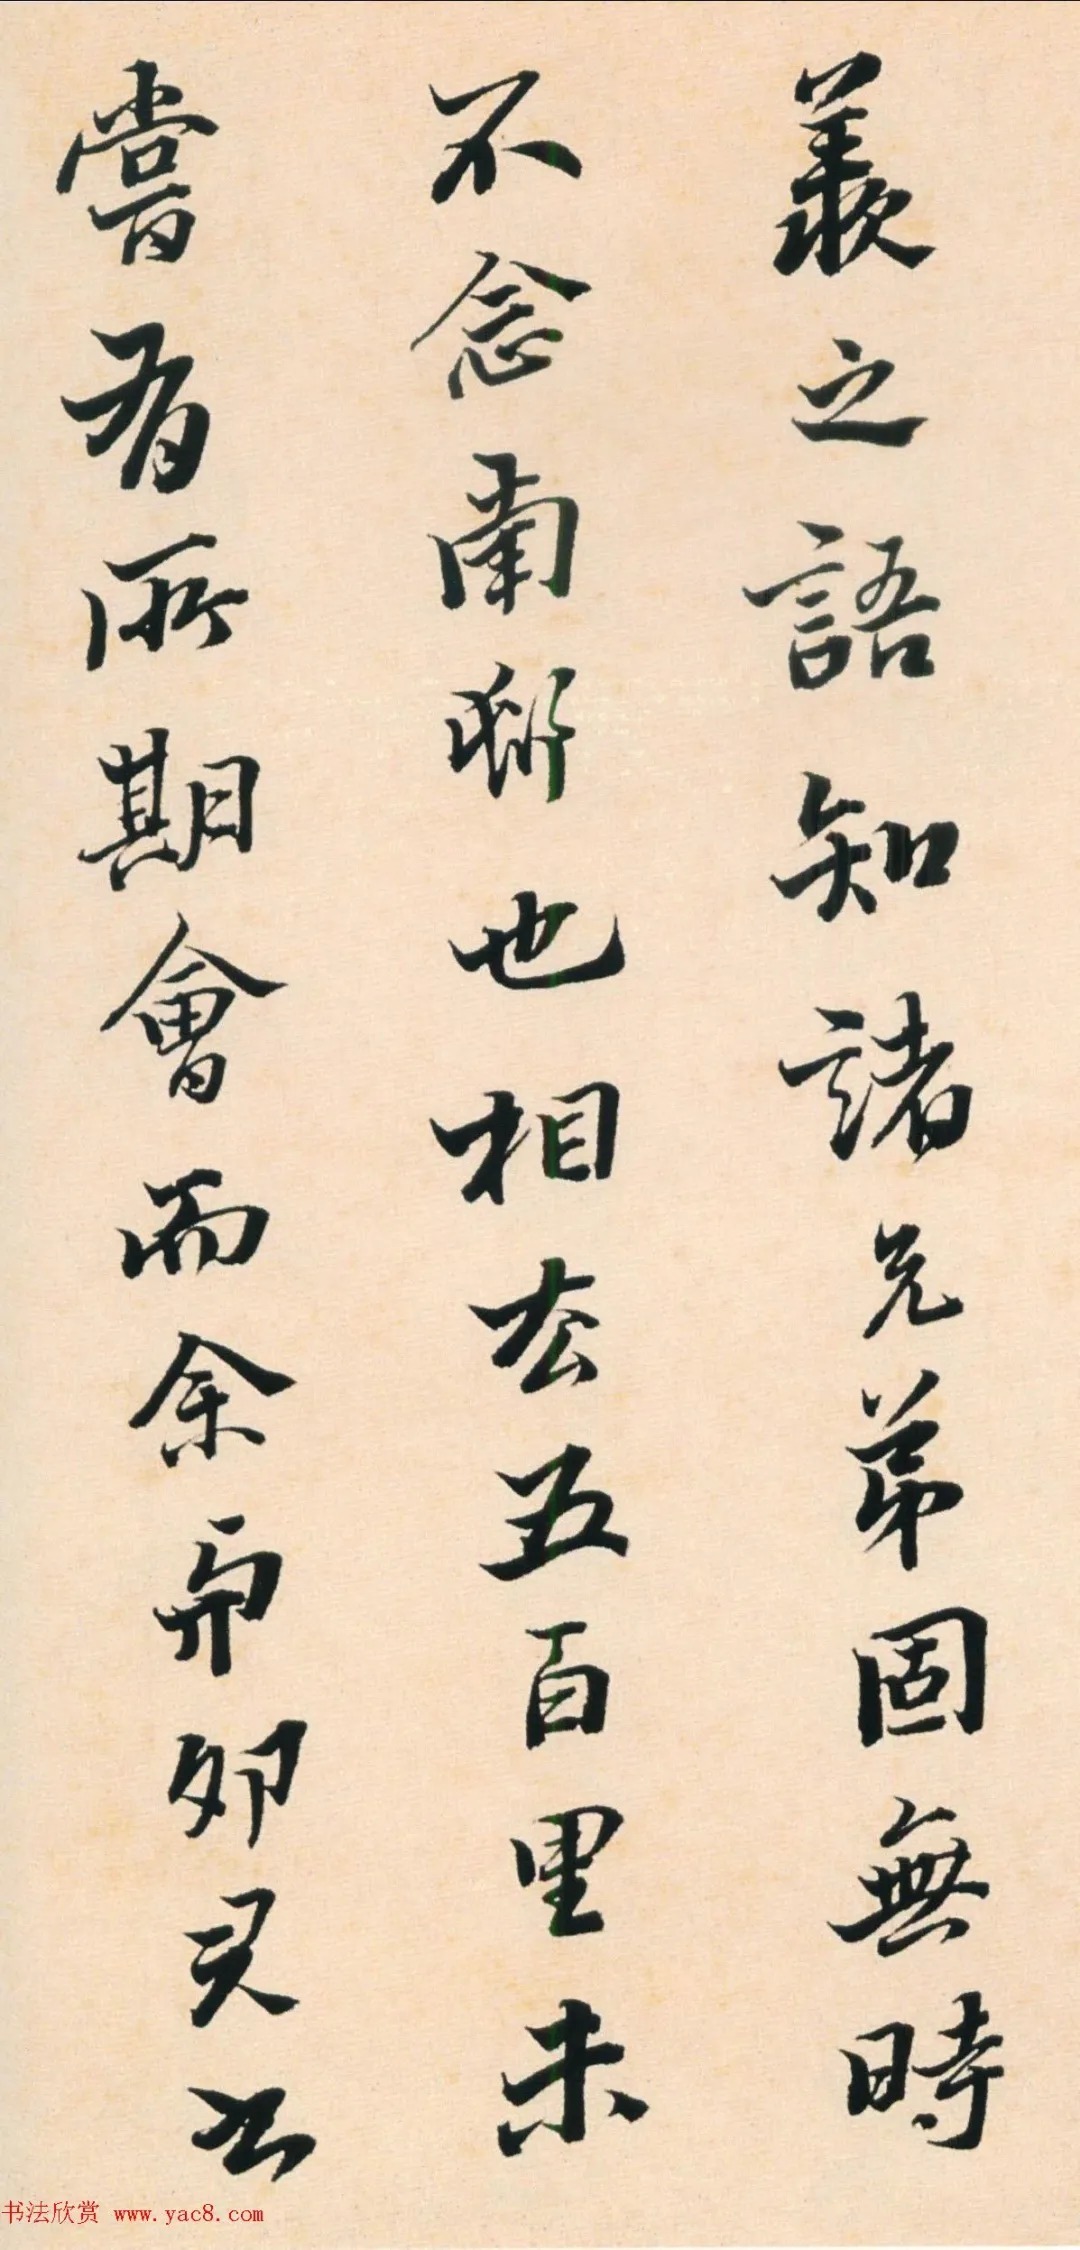 羨之語知諸兄弟固無時
不念南也相去五百里未
嘗有所期會而余
书法欣赏 www.yac8.com